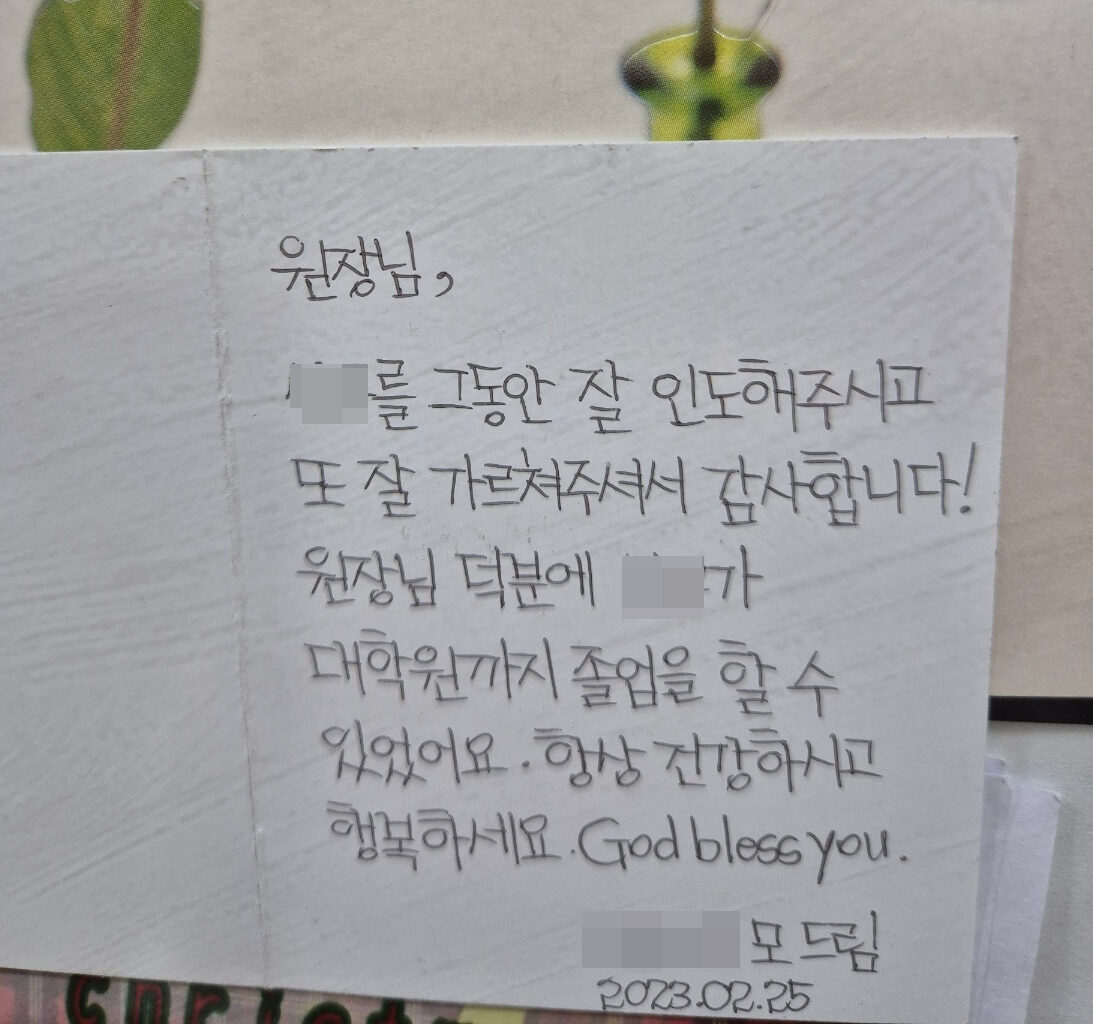 원장님,
를 그동안 잘 인도해주시고
또 잘 가르쳐주셔서 감사합니다!
원장님 덕분에 가
대학원까지 졸업을 할 수
있었어요. 항상 건강하시고
행복하세요. God bless you.
모 드림
2023.02.25